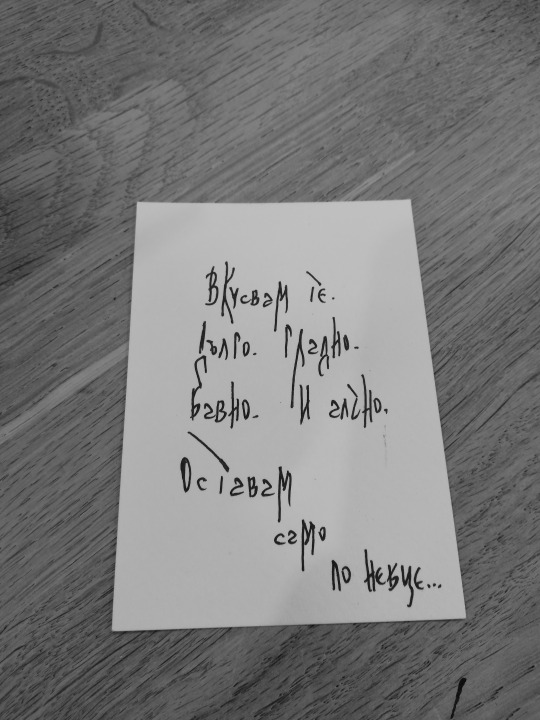 Вкусвам те.
Дълго. Гладно.
Бавно. И алчно.
Оставам
само
по небце...